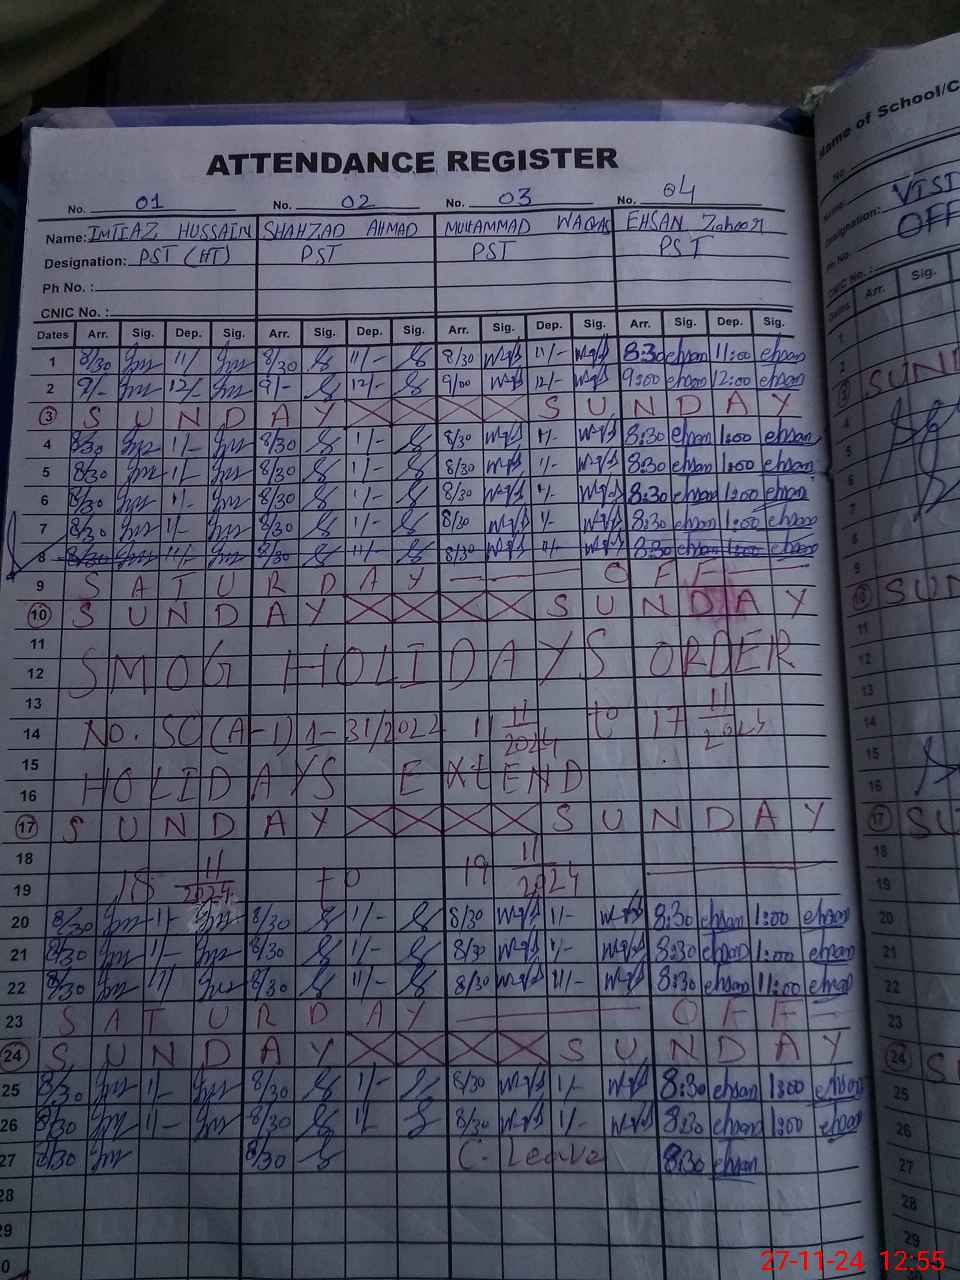 ATTENDANCE REGISTER
No. 01 No. 02 No. 03 No. 04
Name: IMTIAZ HUSSAIN SHAHZAD AHMAD MUHAMMAD WAQAS EHSAN Zahoor
Designation: PST (HT) PST PST PST
Ph No. :
CNIC No. :
Dates Arr. Sig. Dep. Sig. Arr. Sig. Dep. Sig. Arr. Sig. Dep. Sig. Arr. Sig. Dep. Sig.
1 8/30 11/- 8/30 11/- 8/30 11/- 8:30 ehsan 11:00 ehsan
2 9/- 12/- 9/- 12/- 9/00 12/- 9:00 ehsan 12:00 ehsan
3 SUNDAY SUNDAY
4 8/30 1/- 8/30 1/- 8/30 1/- 8:30 ehsan 1:00 ehsan
5 8/30 1/- 8/30 1/- 8/30 1/- 8:30 ehsan 1:00 ehsan
6 8/30 1/- 8/30 1/- 8/30 1/- 8:30 ehsan 1:00 ehsan
7 8/30 1/- 8/30 1/- 8/30 1/- 8:30 ehsan 1:00 ehsan
8 8/30 11/- 8/30 11/- 8/30 11/- 8:30 ehsan ehsan
9 SATURDAY — OFF —
10 SUNDAY SUNDAY
11
12 SMOG HOLIDAYS ORDER
13
14 No. SO(A-I) 1-31/2022 11 11/2024 to 17 11/2024
15
16 HOLIDAYS EXTEND
17 SUNDAY SUNDAY
18
19 18 11/2024 to 19 11/2024
20 8/30 1/- 8/30 1/- 8/30 1/- 8:30 ehsan 1:00 ehsan
21 8/30 1/- 8/30 1/- 8/30 1/- 8:30 ehsan 1:00 ehsan
22 8/30 11/ 8/30 11/- 8/30 11/- 8:30 ehsan 11:00 ehsan
23 SATURDAY — OFF —
24 SUNDAY SUNDAY
25 8/30 1/- 8/30 1/- 8/30 1/- 8:30 ehsan 1:00 ehsan
26 8/30 1/- 8/30 1/- 8/30 1/- 8:30 ehsan 1:00 ehsan
27 8/30 8/30 C. Leave 8:30 ehsan
28
29
Name of School/C
No
Name:
Designation: VISI
Ph No. : OFF
CNIC No. :
Dates Arr. Sig.
1
2
3 SUN
4
5
6
7
8
9
10 SUN
11
12
13
14
15
16
17 SU
18
19
20
21
22
23
24 S
25
26
27
28
29
27-11-24 12:55